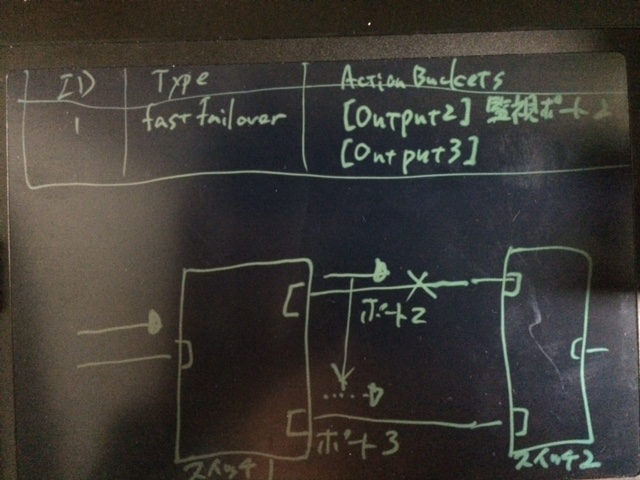 ID Type Action Buckets
1 fastfailover [Output2] 監視ポート2
[Output3]
ポート2
ポート3
スイッチ1
スイッチ2